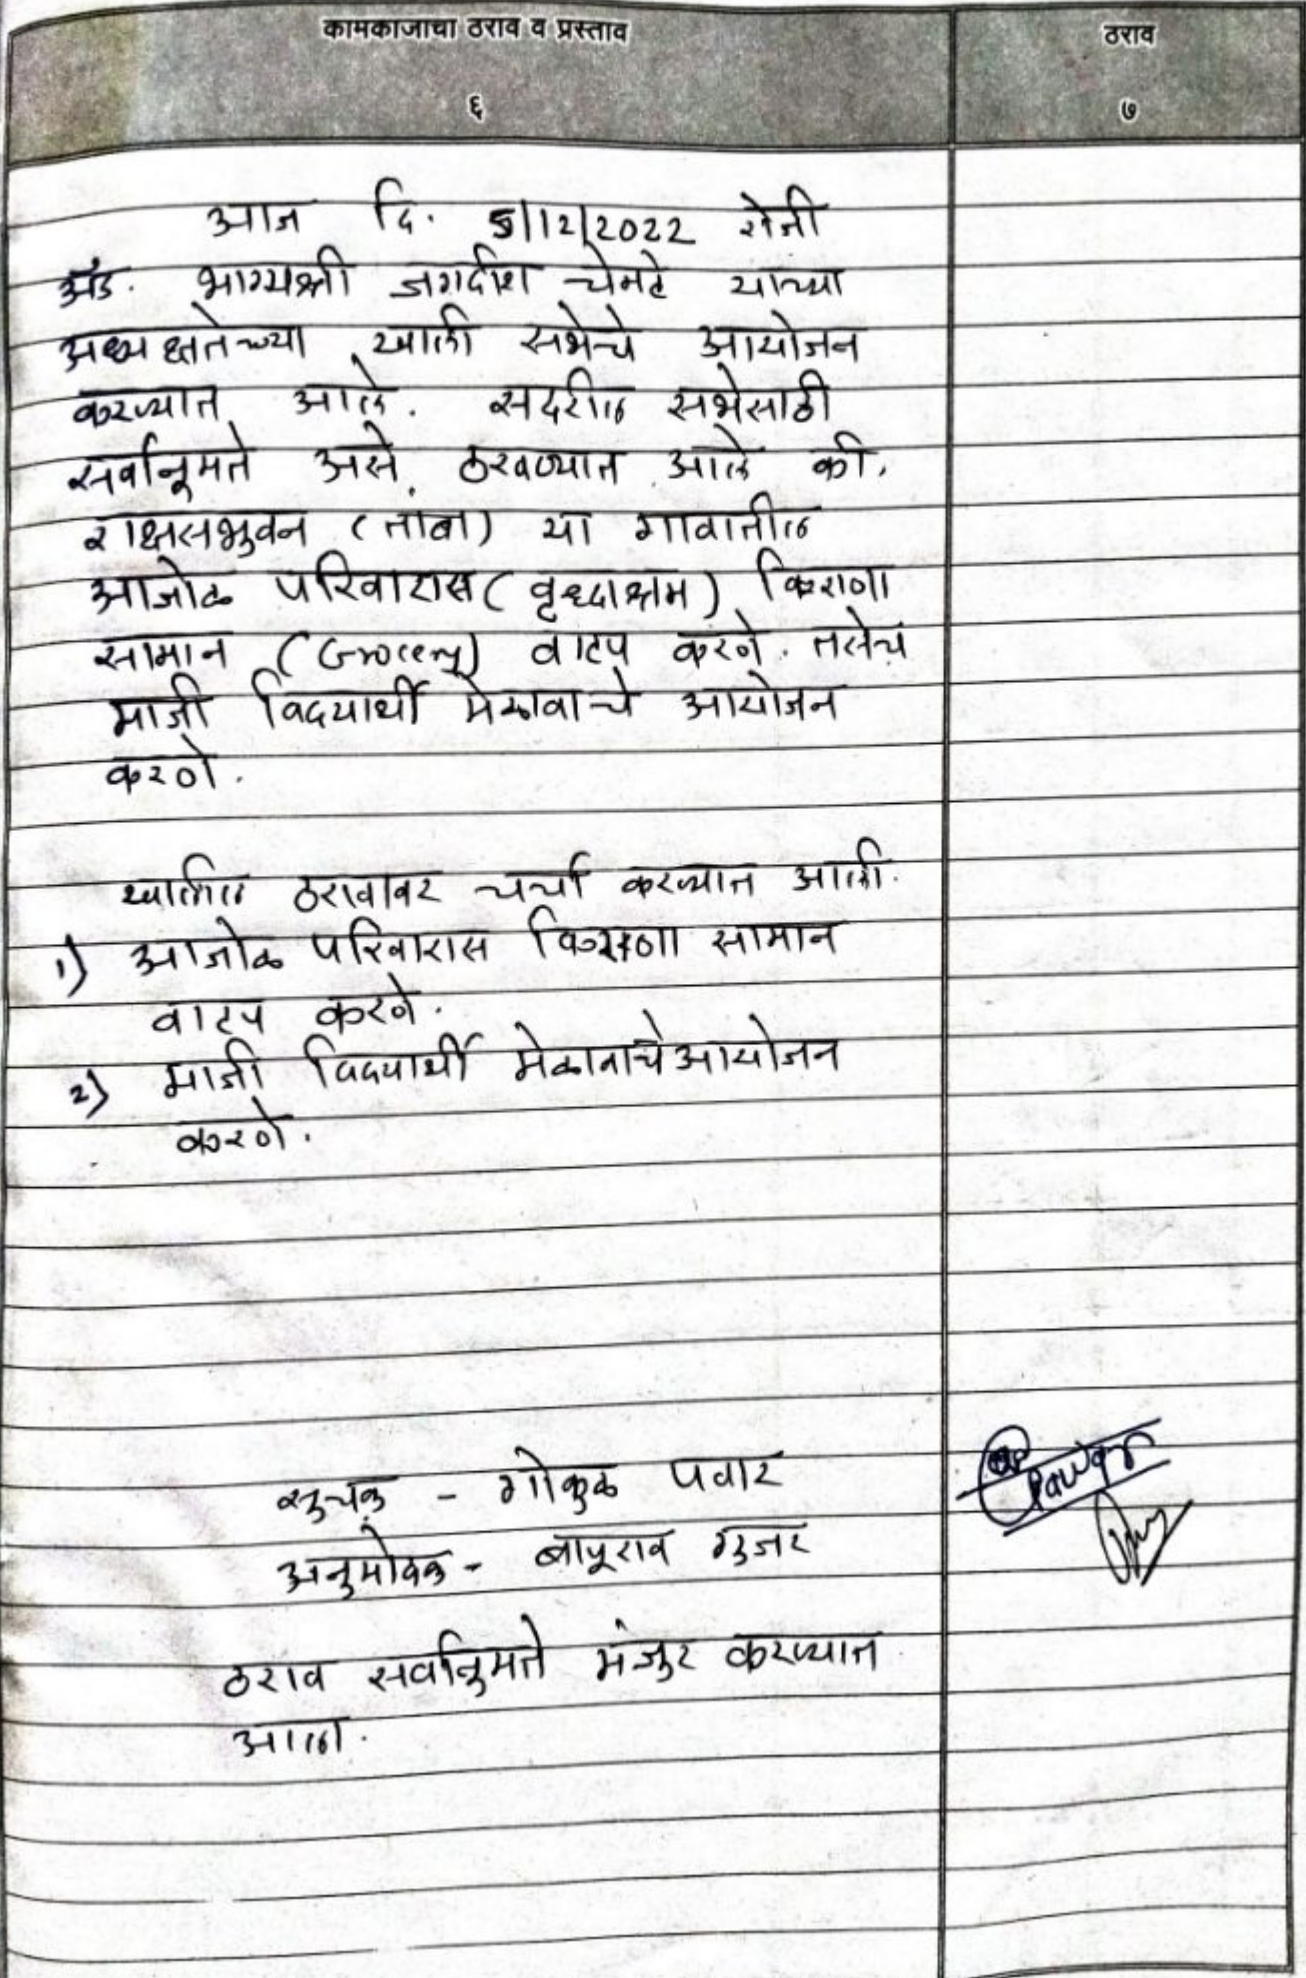 कामकाजाचा ठराव व प्रस्ताव
ठराव
६
७
आज दि. 5/12/2022 रोजी
अॅड. भाग्यश्री जगदीश चेमटे यांच्या
अध्यक्षतेच्या खाली सभेचे आयोजन
करण्यात आले. सदरील सभेसाठी
सर्वानुमते असे ठरवण्यात आले की,
राक्षसभुवन (तांबा) या गावातील
आजोळ परिवारास (वृध्दाश्रम) किराणा
सामान (Grocery) वाटप करने. तसेच
माजी विदयार्थी मेळावाचे आयोजन
करणे.
खालील ठरावावर चर्चा करण्यात आली.
1) आजोळ परिवारास किराणा सामान
वाटप करने.
2) माजी विदयार्थी मेळावाचे आयोजन
करणे.
सुचक - गोकुळ पवार
Pawar
अनुमोदक - बापूराव गुजर
ठराव सर्वानुमते मंजुर करण्यात
आला.